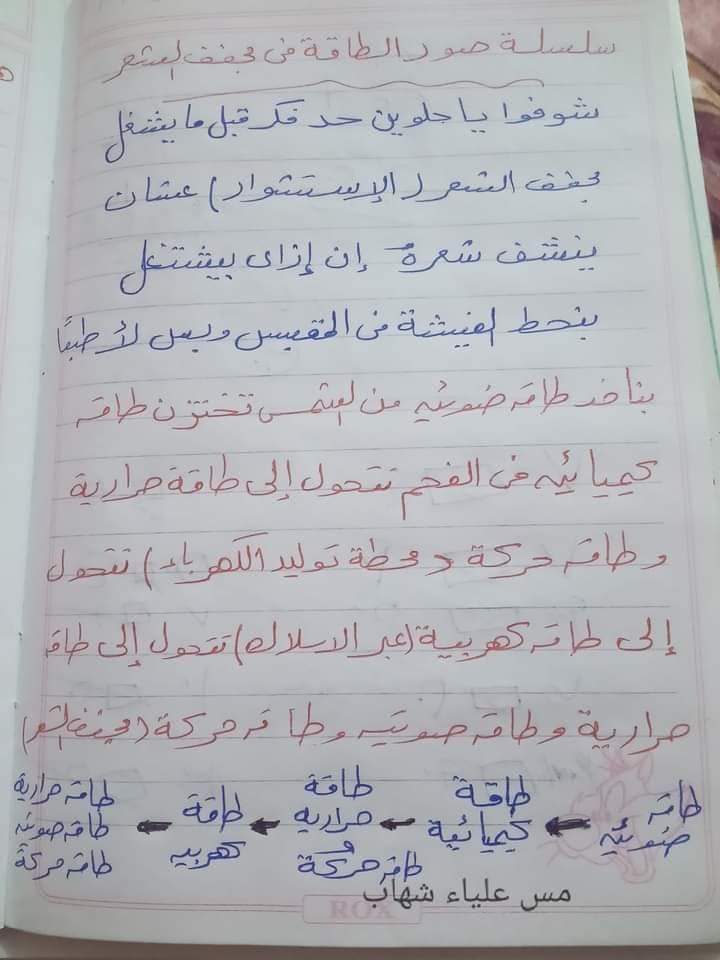 سلسلة صور الطاقة فى مجفف الشعر
شوفوا ياحلوين حد فكر قبل مايشغل
مجفف الشعر (الإستشوار) عشان
ينشف شعره إن إزاى بيشتغل
بنحط الفيشة فى المقبس وبس لأ طبعًا
بناخد طاقه ضوئيه من الشمس تختزن طاقه
كيميائيه فى الفحم تتحول إلى طاقة حرارية
وطاقه حركة (محطة توليد الكهرباء) تتحول
إلى طاقه كهربية (عبر الاسلاك) تتحول إلى طاقه
حرارية وطاقه صوتيه وطاقه حركة (مجفف الشعر)
طاقه ضوئيه ← طاقة كيمائية ← طاقة حراريه و طاقه حركة ← طاقة كهربيه ← طاقه حرارية طاقه صوتيه طاقه حركة
مس علياء شهاب
ROX